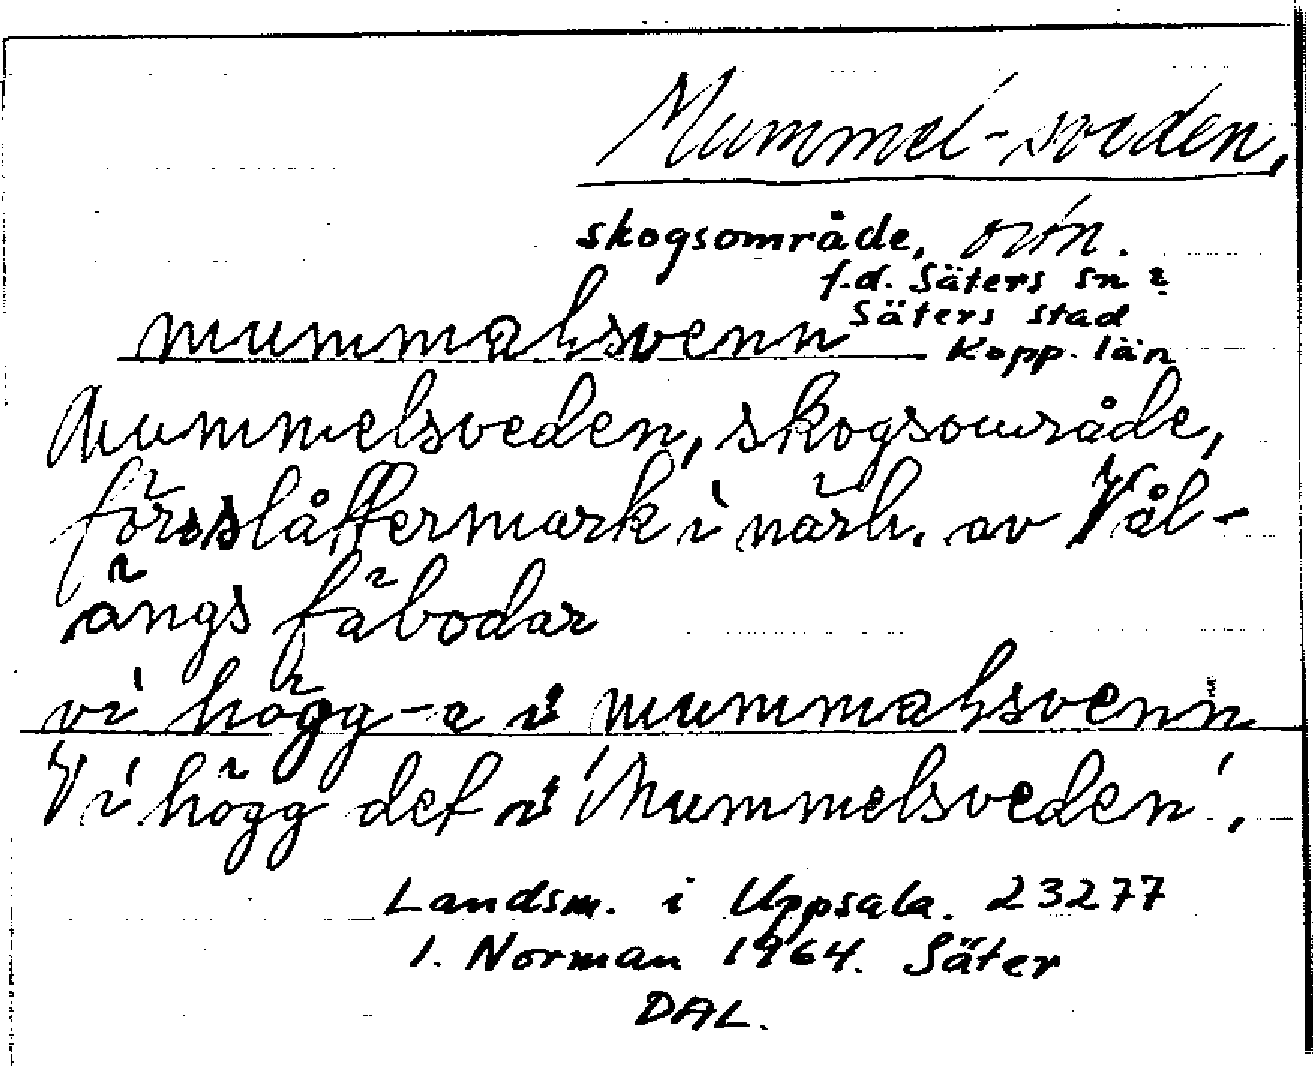 Mummel-sveden,
skogsområde,
f.d. Säters sn
Säters stad
mummalsvenn
Kopp. län
Mummelsveden, skogsområde,
förr slåttermark i närh. av Vål-
ängs fäbodar
vi högg-a i mummalsvenn
Vi högg det i Mummelsveden.
Landsm. i Uppsala. 23277
I. Norman 1964. Säter
DAL.